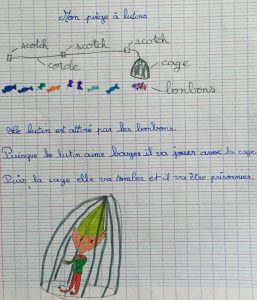 Mon piège à lutins
scotch scotch scotch
corde cage
bonbons
Le lutin est attiré par les bonbons.
Puisque le lutin aime bouger il va jouer avec la cage.
Puis, la cage elle va tomber et il va être prisonnier.